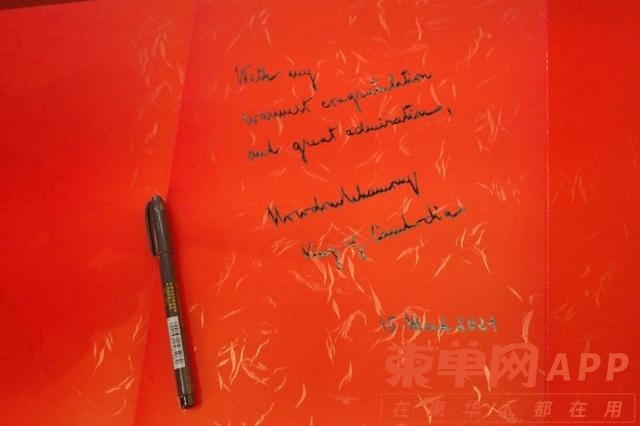 With my
warmest congratulation
and great admiration,
Norodom Sihamony
King of Cambodia
15 March 2021
柬单网APP
在柬华人都在用